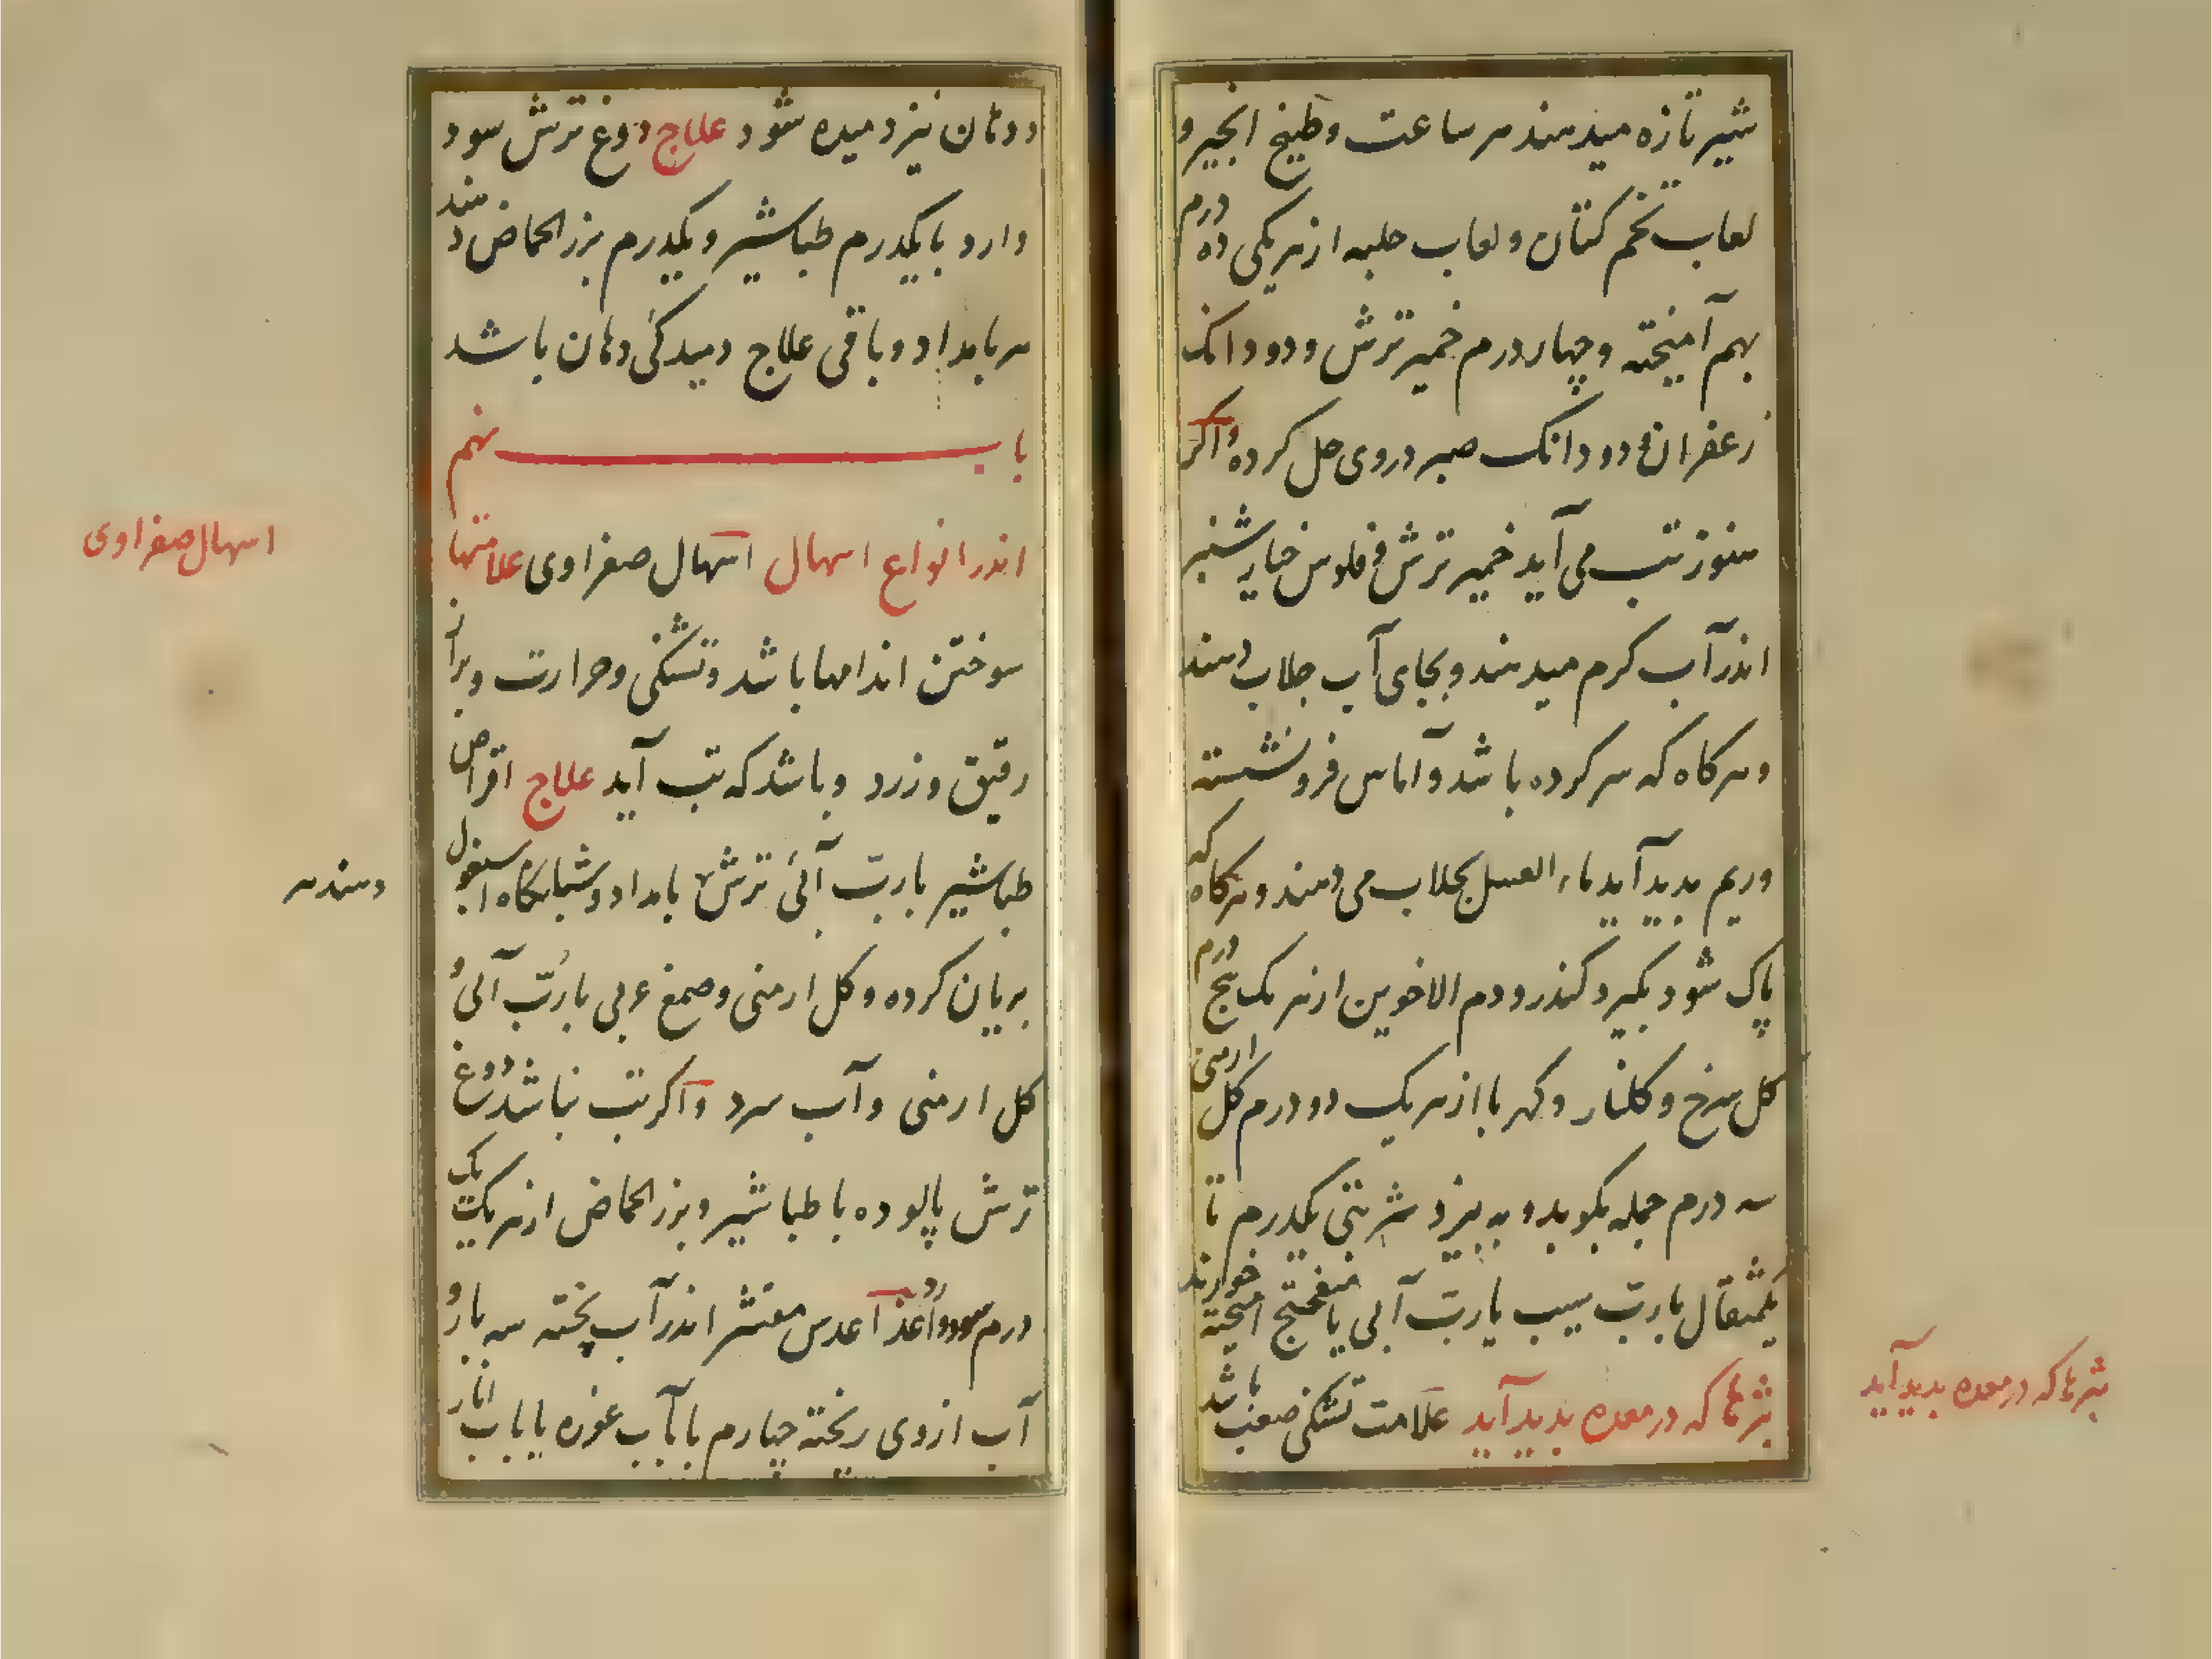 شیر تازه میدهند هر ساعت و طبیخ انجیر و
لعاب تخم کتان و لعاب حلبه از هر یکی ده درم
بهم آمیخته و چهار درم خمیر ترش و دو دانک
زعفران و دو دانک صبر در وی حل کرده و اکر
هنوز تب می آید خمیر ترش فلوس خیار شنبر
اندر آب کرم میدهند و بجای آب جلاب دهند
و هر کاه که سر کرده باشد و آماس فرو نشسته
و ریم بدید آید ماء العسل بجلاب می دهند و هر کاه که
پاک شود بکیرد کندر و دم الاخوین از هر یک پنج درم
کل سرخ و کلنار و کهربا از هر یک دو درم کل ارمنی
سه درم جمله بکوبد و به بیزد شربتی یکدرم تا
یکمثقال با رب سیب یا رب آبی یا میفختج امیخته خورند
بثرها که در معده بدید آید علامت تشنکی صعب باشد
بثرها که در معده بدید آید
و دهان نیز دمیده شود علاج دوغ ترش سود
دارد با یکدرم طباشیر و یکدرم بزر الحماض دهند
هر بامداد و باقی علاج دمیدکی دهان باشد
باب نهم
اندر انواع اسهال اسهال صفراوی علامتها
اسهال صفراوی
سوختن اندامها باشد و تشنکی و حرارت و براز
رقیق و زرد و باشد که تب آید علاج اقراص
طباشیر با رب آبی ترش بامداد و شبانکاه اسبغول
دهند هر
بریان کرده و کل ارمنی و صمغ عربی با رب آبی و
کل ارمنی و آب سرد و اکر تب نباشد دوغ
ترش پالوده با طباشیر و بزر الحماض از هر یک یک
درم سود دارد غذا عدس مقشر اندر آب پخته سه بار و
آب از وی ریخته چهارم با آب غوره یا با آب انار